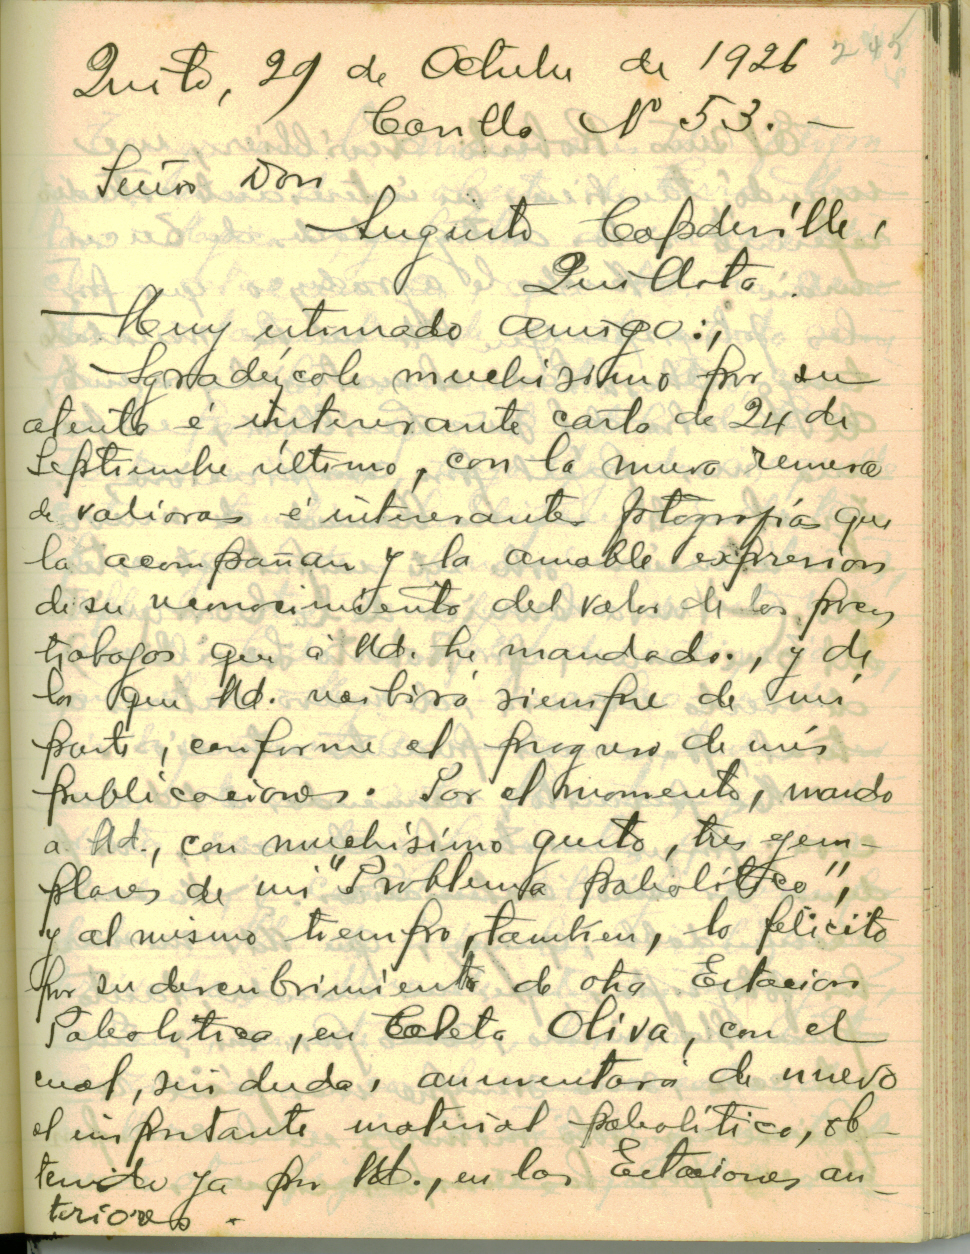 245
6
Quito, 29 de Octubre de 1926
Casilla Nº 53. —
Señor Don
Augusto Capdeville,
Quillota.
Muy estimado amigo:,
Agradézcole muchísimo por su
atenta é interesante carta de 24 de
Septiembre último, con la nueva remesa
de valiosas é interesantes fotografías que
la acompañan y la amable expresion
de su reconocimiento del valor de los pocos
trabajos que á Ud. he mandado., y de
los que Ud. recibirá siempre de mi
parte, conforme el progreso de mis
publicaciones. Por el momento, mando
a Ud., con muchísimo gusto, tres ejem-
plares de mi "Problema paleolítico",
y al mismo tiempo, tambien, lo felicito
por su descubrimiento de otra Estacion
Paleolitica, en Caleta Oliva, con el
cual, sin duda, aumentará de nuevo
el importante material paleolítico, ob-
tenido ya por Ud., en las Estaciones an-
teriores.